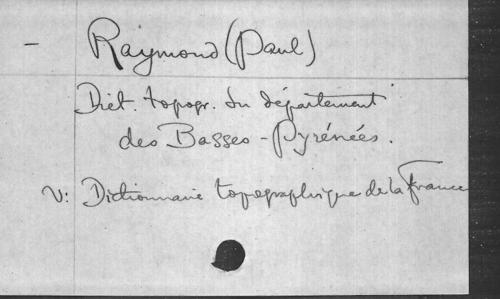 - Raymond (Paul)
Dict. topogr. du département
des Basses-Pyrénées.
V: Dictionnaire topographique de la France